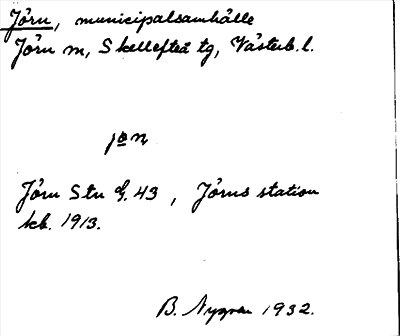 Jörn, municipalsamhälle
Jörn m, Skellefteå tg, Västerb. l.
jɵ̄n
Jörn Stn G. 43, Jörns station
kb. 1913.
B. Nygren 1932.